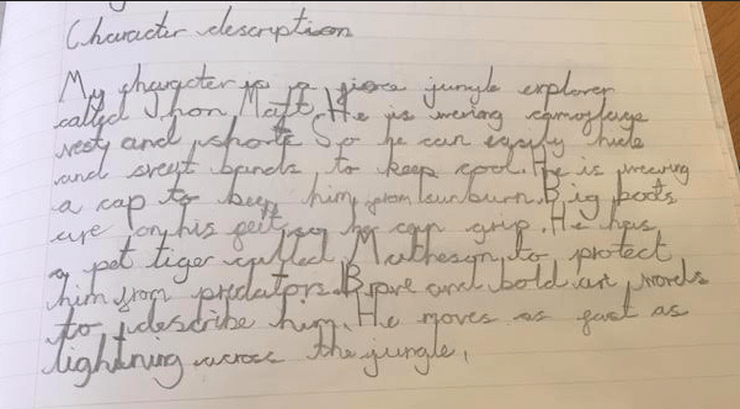 Character description
My character is a fierce jungle explorer
called Jhon Matt. He is wering camoflage
vest and shorts So he can easily hide
and sweat bands to keep cool. He is wearing
a cap to keep him from sunburn. Big boots
are on his feet so he can grip. He has
a pet tiger called Matheson to protect
him from predators. Brave and bold are words
to describe him. He moves as fast as
lightning across the jungle.